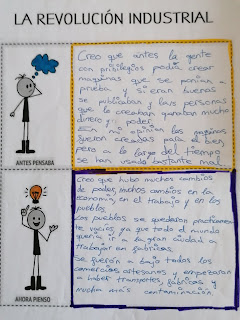 LA REVOLUCIÓN INDUSTRIAL
Creo que antes la gente
con privilegios podía crear
maquinas que se ponian
prueba y si eran buenas
se publicaban y las personas
que lo creaban ganaban mucho
dinero y poder.
En mi opinion las maquinas
fueron creadas para el bien
pero a lo largo del tiempo
se han usado bastante mal.
ANTES PENSABA
Creo que hubo muchos cambios
de poder, muchos cambios en la
economía en el trabajo y en los
pueblos.
Los pueblos se quedaron practicamen
te vacios ya que todo el mundo
queria ir a la gran ciudad a
trabajar en fabricas.
Se fueron a bajo todos los
comercios artesanos y empezaron
a haber transportes, fábricas y
mucha más contaminación.
AHORA PIENSO